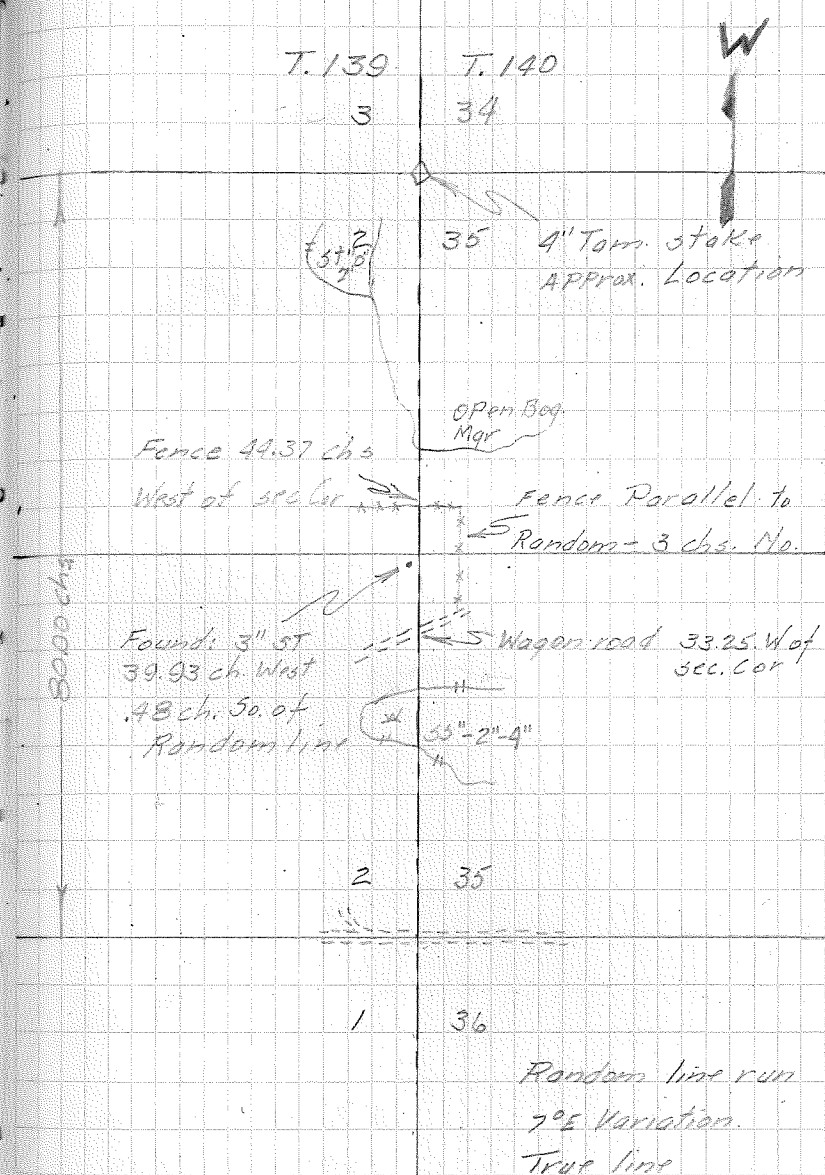 W
T. 139 T. 140
3 34
2 35
4" Tam. stake
Approx. Location
Open Bog
Mgr
Fence 44.37 chs
West of sec Cor
Fence Parallel to
Random - 3 chs. No.
80.00 chs
Found: 3" ST
39.93 ch. West
.48 ch. So. of
Random line
Wagon road 33.25 W of
sec. Cor
55"-2"-4"
2 35
1 36
Random line run
7°E Variation.
True line